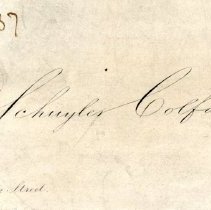 37
Schuyler Colf
Street